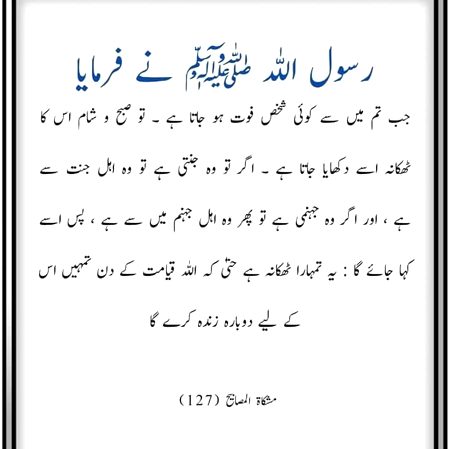 رسول اللہ ﷺ نے فرمایا
جب تم میں سے کوئی شخص فوت ہو جاتا ہے ۔ تو صبح و شام اس کا
ٹھکانہ اسے دکھایا جاتا ہے ۔ اگر تو وہ جنتی ہے تو وہ اہل جنت سے
ہے ، اور اگر وہ جہنمی ہے تو پھر وہ اہل جہنم میں سے ہے ، پس اسے
کہا جائے گا : یہ تمہارا ٹھکانہ ہے حتیٰ کہ اللہ قیامت کے دن تمہیں اس
کے لیے دوبارہ زندہ کرے گا
مشکاۃ المصابیح (127)